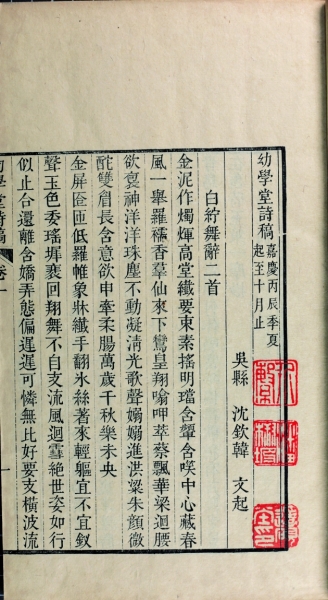 幼學堂詩稿 嘉慶丙辰季夏起至十月止
吳縣 沈欽韓 文起
白紵舞辭二首
金泥作燭煇高堂纖要束素搖明璫含顰含笑中心藏春
風一舉羅襦香羣仙來下鸞皇翔喻呷萃蔡飄華梁迴腰
欲褭神洋洋珠塵不動凝清光歌聲嫋嫋進洪梁朱顏微
酡雙眉長含意欲申牽柔腸萬歲千秋樂未央
金屏匼匝低羅帷象牀纖手翻氷絲著來輕軀宜不宜釵
聲玉色委瑤墀褭回翔舞不自支流風迴雪絕世姿如行
似止台還離含嬌弄態偏遲遲可憐無比好要支橫波流
幼學堂詩稿 卷一
一